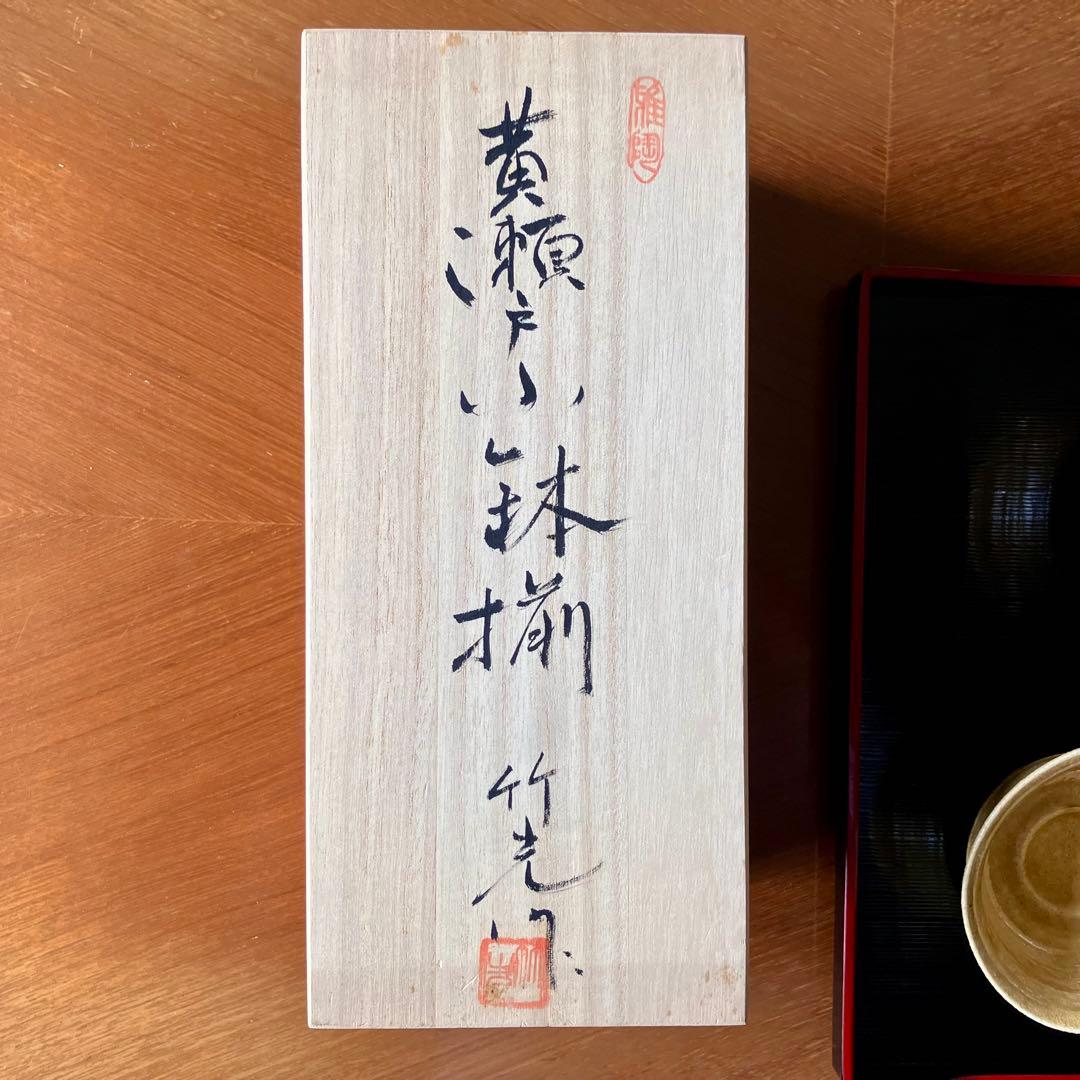 黄瀬戸小鉢揃 竹光作
雅陶